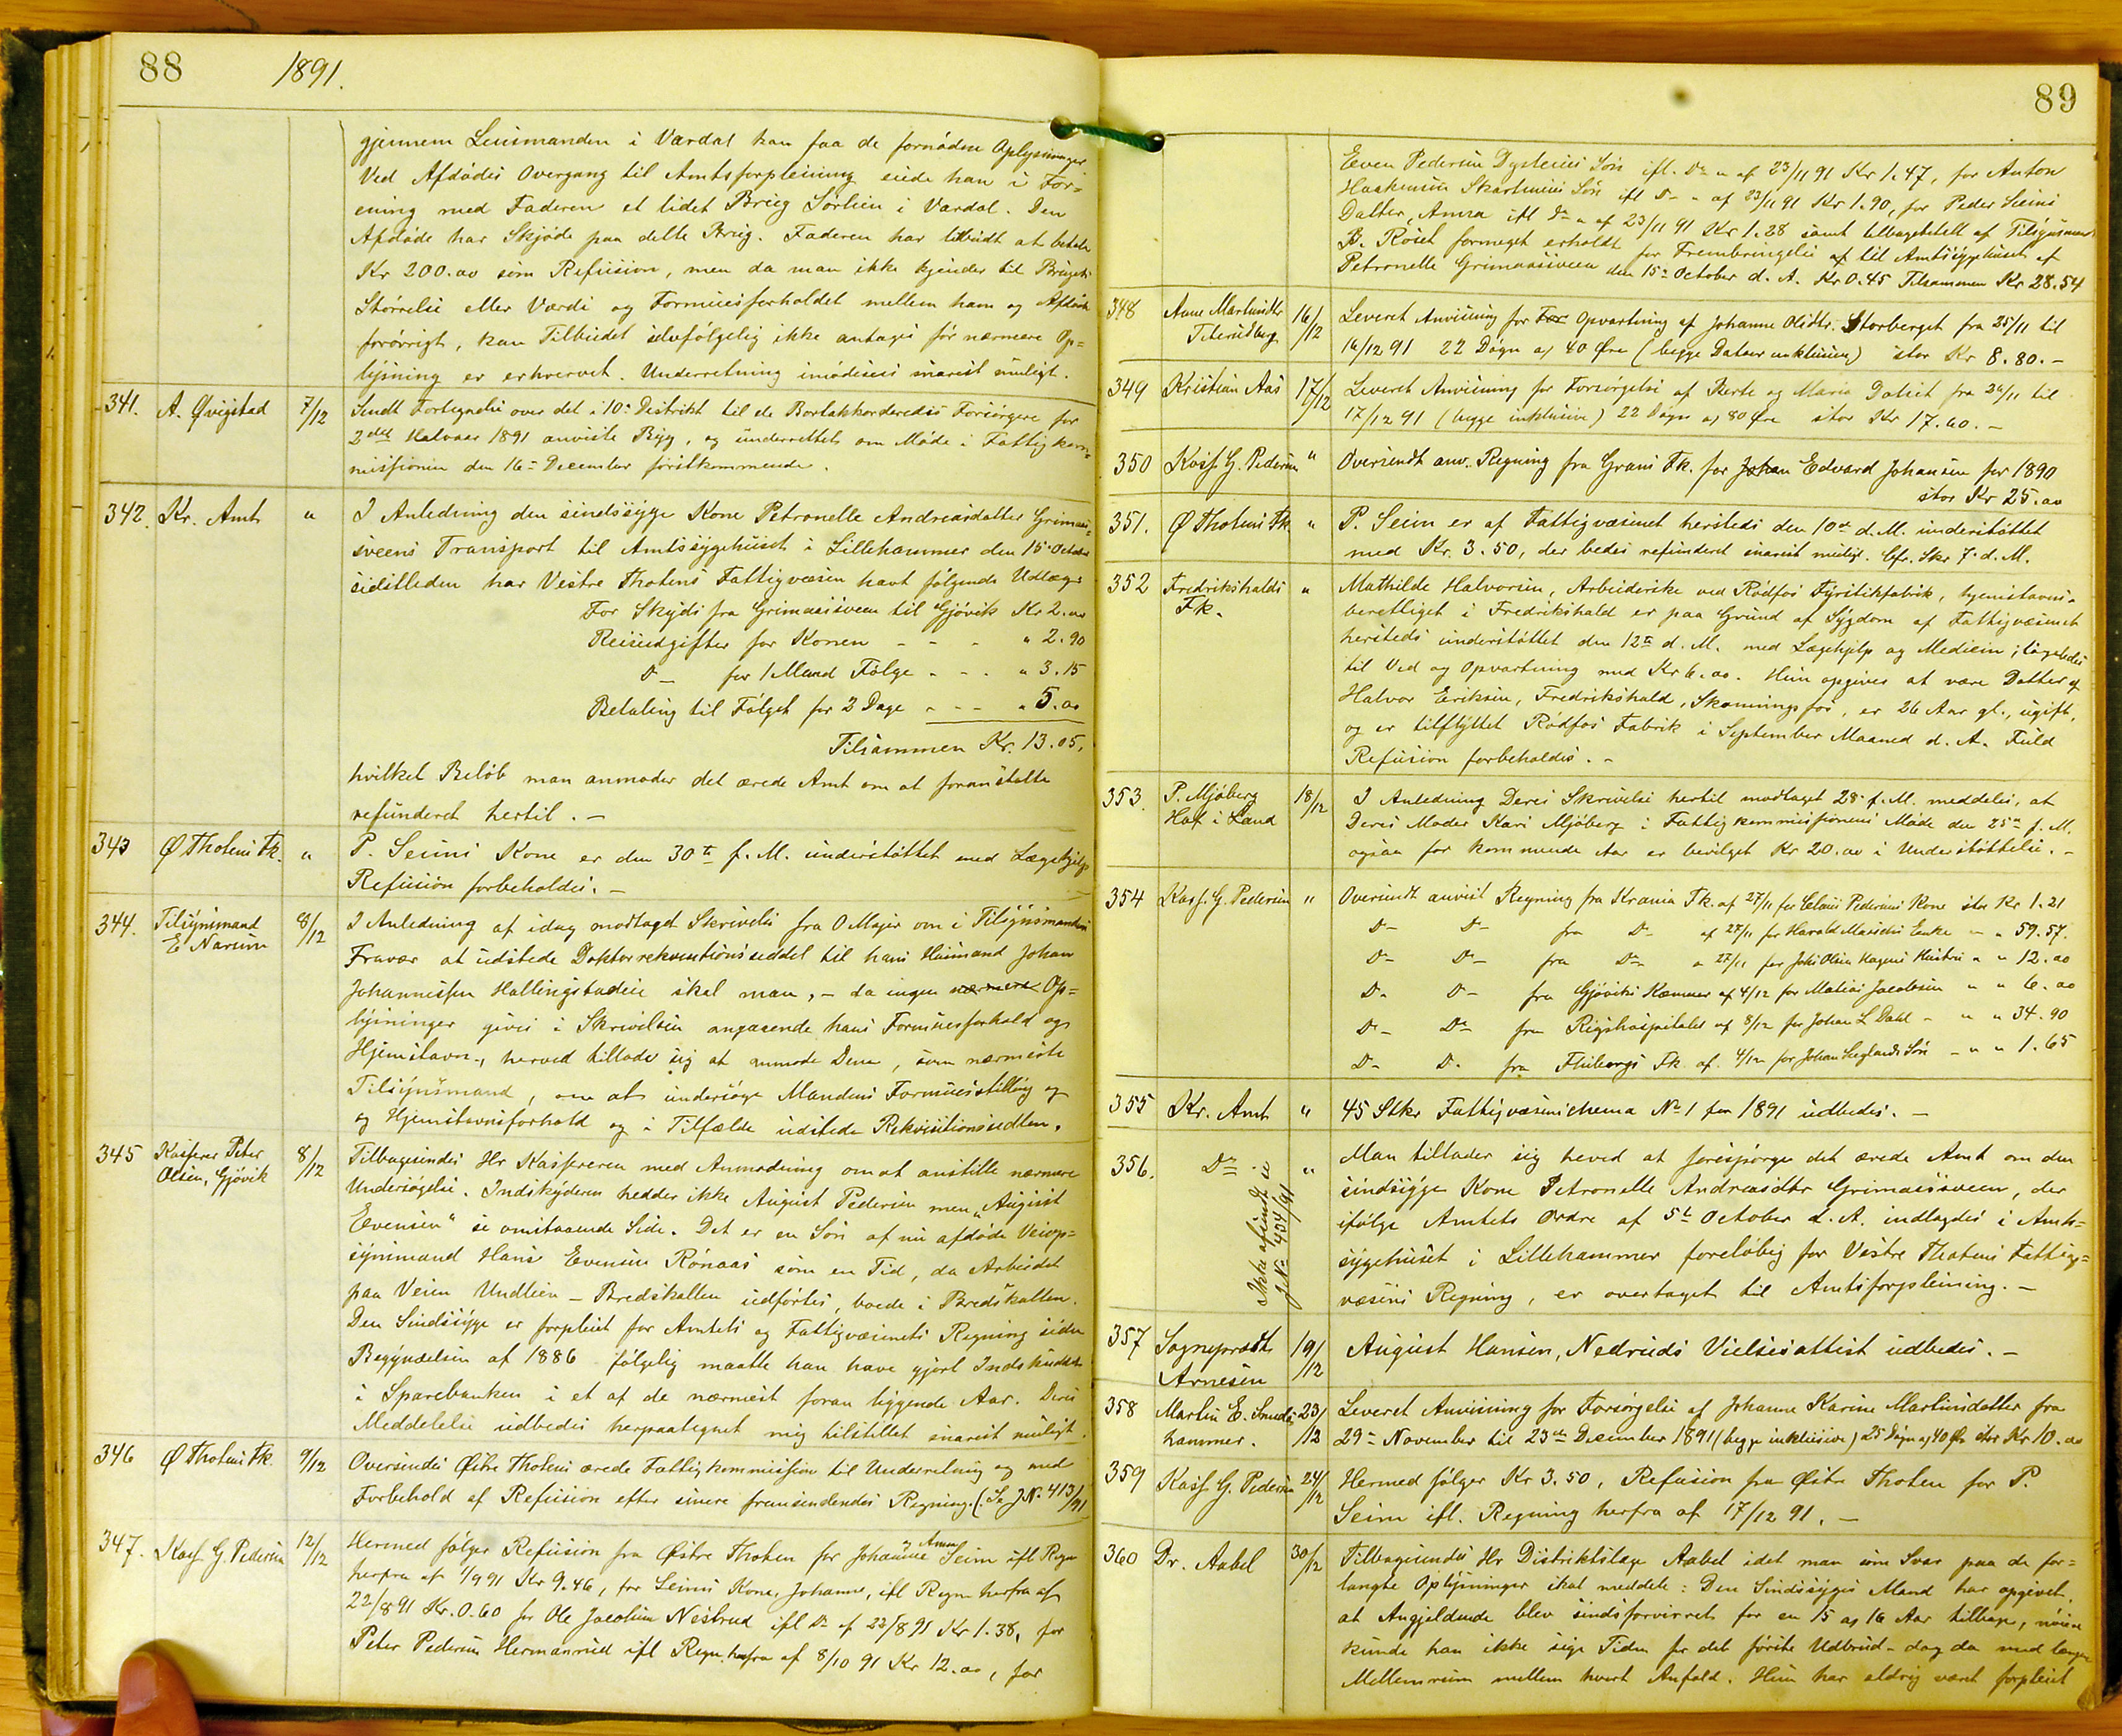 88 1891.
gjennem Lensmanden i Vardal kan faa de fornødne Oplysninger
Ved Afdødes Overgang til Amtsforpleining eiede han i For=
ening med Faderen et lidet Brug Sørlien i Vardal. Den
Afdøde har Skjøde paa dette Brug. Faderen har tilbudt at betale
Kr 200.00 som Refusion, men da man ikke kjender til Brugets
Størrelse eller Værdi og Formuesforholdet mellem ham og Afdøde
forøvrigt, kan Tilbudet selvfølgelig ikke antages før nærmere Op=
lysning er erhvervet. Underretning imødesees snarest muligt.
341. A. Øvigstad 7/12 Sendt Fortegnelse over det i 10de Distrikt til de Bortakkorderedes Forsørgere for
2det Halvaar 1891 anviste Byg, og underrettet om Møde i Fattigkom=
missionen den 16de December førstkommende.
342. Kr. Amt " I Anledning den sindssyge Kone Petronelle Andreasdatter Grimas=
sveens Transport til Amtssygehuset i Lillehammer den 15de October
sidstleden har Vestre Thotens Fattigvæsen havt følgende Udlæg:
For Skyds fra Grimassveen til Gjøvik Kr 2.00
Reiseudgifter for Konen - - - " 2.90
Do - for 1 Mand Følge - - - " 3.15
Betaling til Følget for 2 Dage - - - " 5.00
Tilsammen Kr. 13.05.
hvilket Beløb man anmoder det ærede Amt om at foranstalte
refunderet hertil. -
343 Ø Thotens Fk. " P. Seims Kone er den 30te f. M. understøttet med Lægehjelp
Refusion forbeholdes. -
344. Tilsynsmand 8/12 I Anledning af idag modtaget Skrivelse fra O Majer om i Tilsynsmandens
E Narum Fravær at udstede Doktorrekvisitionsseddel til hans Husmand Johan
Johannessen Hallingstadeie skal man, - da ingen nærmere Op=
lysninger gives i Skrivelsen angaaende hans Formuesforhold og
Hjemstavn -, herved tillade sig at anmode Dem, som nærmeste
Tilsynsmand, om at undersøge Mandens Formuesstilling og
og Hjemstavnsforhold og i Tilfælde udstede Rekvisitionssedlen.
345 Kasserer Peter 8/12 Tilbagesendes Hr Kassereren med Anmodning om at anstille nærmere
Olsen, Gjøvik Undersøgelse. Indskyderen hedder ikke August Pedersen men „August
Evensen“ se omstaaende Side. Det er en Søn af nu afdøde Veiop=
synsmand Hans Evensen Rønaas som en Tid, da Arbeidet
paa Veien Undlien - Bredskallen udførtes, boede i Bredskallen.
Den Sindssyge er forpleiet for Amtets og Fattigvæsenets Regning siden
Begyndelsen af 1886 følgelig maatte han have gjort Indskuddet
i Sparebanken i et af de nærmest foran liggende Aar. Deres
Meddelelse udbedes herpaategnet mig tilstillet snarest muligt.
346 Ø Thotens Fk. 9/12 Oversendes Østre Thotens ærede Fattigkommission til Underretning og med
Forbehold af Refusion efter senere fremsendendes Regning. (Se J No. 413/91
347. Kass. G. Pedersen 12/12 Hermed følger Refusion fra Østre Thoten for Johanne Anna Seim ifl Regn
herfra af 1/9 91 Kr 9.46, for Seims Kone, Johanne, ifl Regn herfra af
22/8 91 Kr. 0.60 for Ole Jacobsen Nesbrud ifl Do af 22/8 91 Kr 1.38, for
Peter Pedersen Hermanrud ifl Regn. herfra af 8/10 91 Kr 12.00, for
89
Even Pedersen Dysteries Søn ifl. Do " af 23/11 91 Kr 1.47, for Anton
Haakensen Skartmies Søn ifl Do - " af 23/11 91 Kr 1.90, for Peder Seims
Datter, Anna ifl Do " af 23/11 91 Kr 1.28 samt tilbagebetalt af Tilsynsmand
B. Røset formeget erholdt for Frembringelse af til Amtssygehuset af
Petronelle Grimassveen den 15de October d. A. Kr 0.45 Tilsammen Kr 28.54
348 Anne Martinsdtr 16/12 Leveret Anvisning for For Opvartning af Johanne Olsdtr. Storberget fra 25/11 til
Titerudberg 16/12 91 22 Døgn af 40 Øre (begge Datoer inklusive) stor Kr 8.80. -
349 Kristian Aas 17/12 Leveret Anvisning for Forsørgelse af Berte og Maria Dalset fra 26/11 til
17/12 91 (begge inklusive) 22 Døgn af 80 Øre stor Kr 17.60. -
350 Kass G. Pedersen " Oversendt anv. Regning fra Grans Fk. for Johan Edvard Johansen for 1890
stor Kr 25.00
351. Ø Thotens Fk " P. Seim er af Fattigvæsenet hersteds den 10de d. M. understøttet
med Kr. 3.50, der bedes refunderet snarest muligt. Cfr. Skr 7de d. M.
352 Fredrikshalds " Mathilde Halvorsen, Arbeiderske ved Rødfos Fyrstikfabrik, hjemstavns=
Fk. berettiget i Fredrikshald er paa Grund af Sygdom af Fattigvæsenet
hersteds understøttet den 12te d. M. med Lægehjelp og Medicin; ligeledes
til Ved og Opvartning med Kr 6.00. Hun opgives at være Datter af
Halvor Eriksen, Fredrikshald, Skonningsfos, er 26 Aar gl., ugift,
og er tilflyttet Rødfos Fabrik i September Maaned d. A. Fuld
Refusion forbeholdes. -
353. P. Mjøberg 18/12 I Anledning Deres Skrivelse hertil modtaget 28de f. M. meddeles, at
Hof i Land Deres Moder Kari Mjøberg i Fattigkommissionens Møde den 25de f. M.
ogsaa for kommende Aar er bevilget Kr 20.00 i Understøttelse. -
354 Kass. G. Pedersen " Oversendt anvist Regning fra Krania Fk. af 27/11 for Claus Pedersens Kone stor Kr 1.21
Do - Do - fra Do - af 27/11 for Harald Enke - " 59.57.
Do - Do - fra Do - " 27/11 for Johs Olsen Hagens Hustru " " 12.00
Do - Do - fra Gjøviks Kæmner af 4/12 for Matias Jacobsen " " 6.00
Do - Do - fra Rigshospitalet af 8/12 for Johan L Dahl - " " 34.90
Do - Do - fra Fk. af 4/12 for Johan Søn - " " 1.65
355 Kr. Amt " 45 Stkr Fattigvæsenschema No 1 for 1891 udbedes. -
356. Do " Man tillader sig heved at forespørge det ærede Amt om den
Ikke afsendt se
J No 434/91
sindssyge Kone Petronelle Andreasdtr Grimassveen, der
ifølge Amtets Ordre af 5te October d. A. indlagdes i Amts=
sygehuset i Lillehammer foreløbig for Vestre Thotens Fattig=
væsens Regning, er overtaget til Amtsforpleining. -
357 Sogneprest 19/12 August Hansen, Nedruds Vielsesattest udbedes. -
Arnesen
358 Martin E. Smeds= 23/12 Leveret Anvisning for Forsørgelse af Johanne Karine Martinsdatter fra
hammer. 29de November til 23de December 1891 (begge inklusive) 25 Døgn af 40 Øre stor Kr 10.00
359 Kass G. Pedersen 24/12 Hermed følger Kr 3.50, Refusion fra Østre Thoten for P.
Seim ifl. Regning herfra af 17/12 91. -
360 Dr. Aabel 30/12 Tilbagesendes Hr Distriktslæge Aabel idet man som Svar paa de for=
langte Oplysninger skal meddele: Den Sindssyges Mand har opgivet,
at Angjeldende blev sindsforvirret for en 15 af 16 Aar tilbage, nøie
kunde han ikke sige Tiden for det første Udbrud - dog da med længre
Mellemrum mellem hvert Anfald. Hun har aldrig været forpleiet